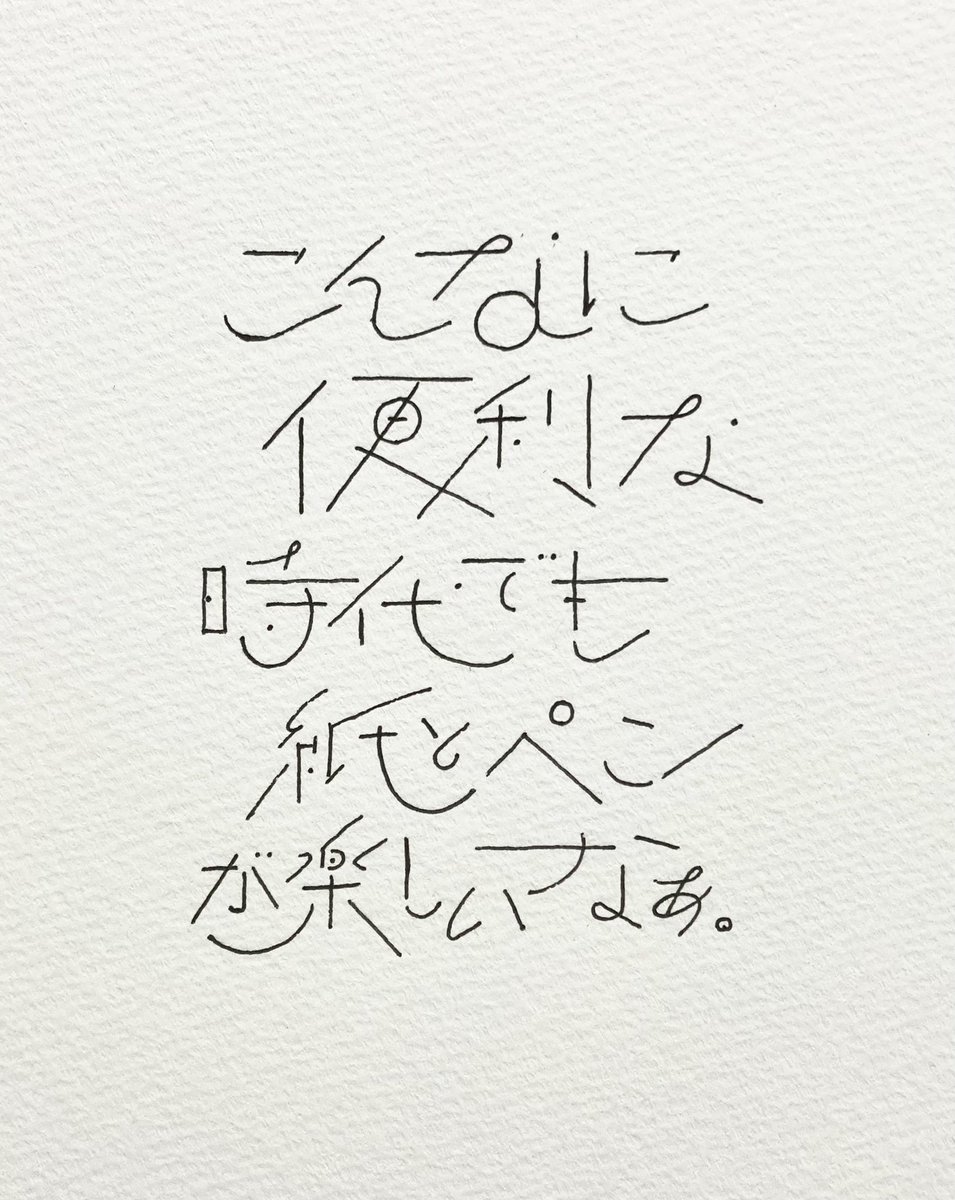 こんなにこ
便利な
時代でも
紙とペン
が楽しいなあ。